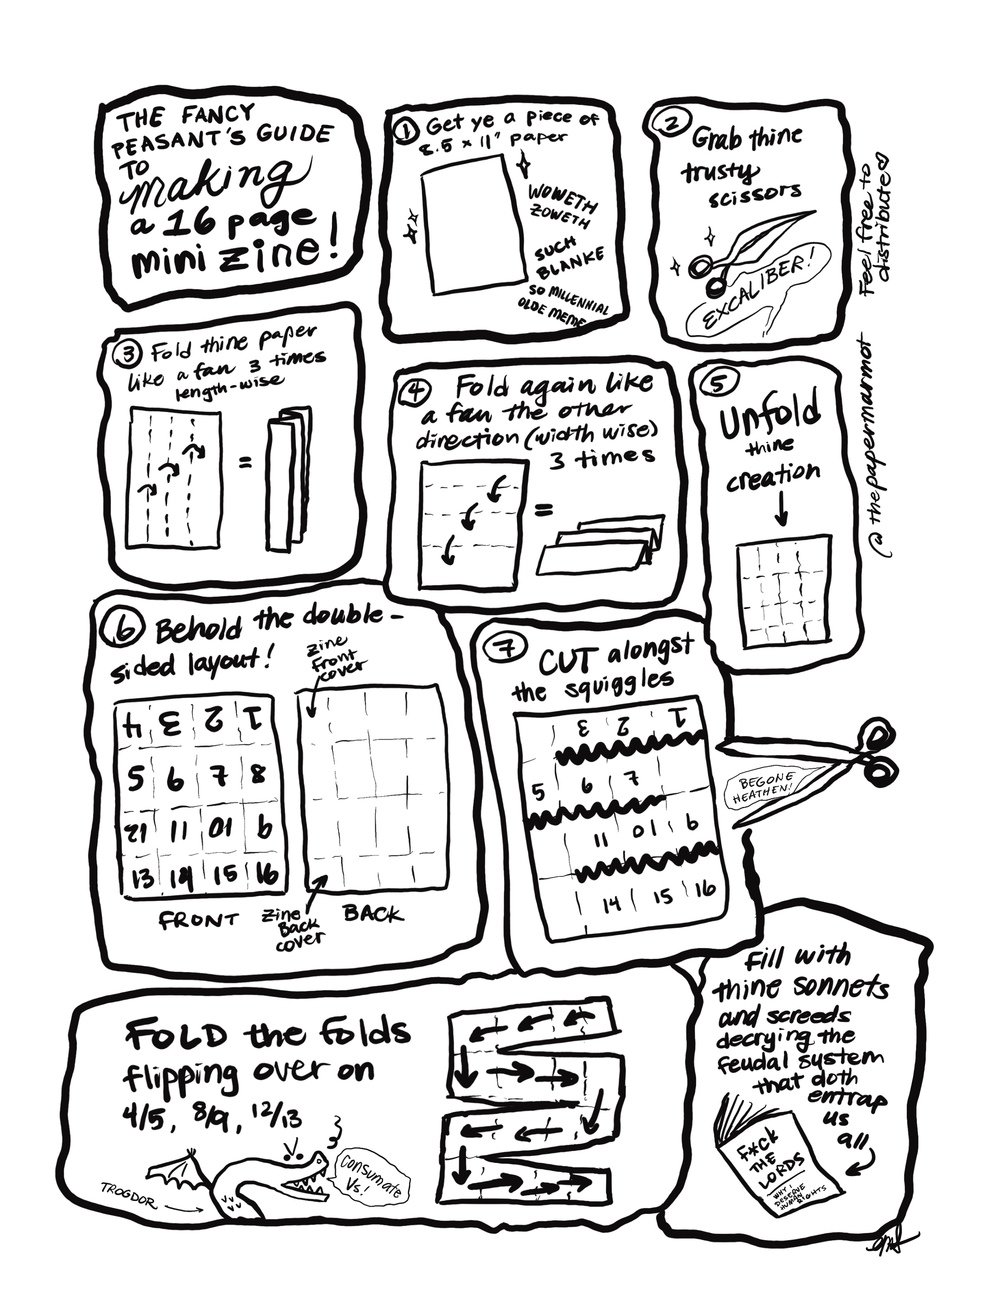 THE FANCY
PEASANT'S GUIDE
TO
making
a 16 page
mini zine!
① Get ye a piece of
8.5 x 11" paper
WOWETH
ZOWETH
SUCH
BLANKE
SO MILLENNIAL
OLDE MEME
② Grab thine
trusty
scissors
EXCALIBER!
Feel free to
distribute♡
@thepapermarmot
③ Fold thine paper
like a fan 3 times
length-wise
=
④ Fold again like
a fan the other
direction (width wise)
3 times
=
⑤
Unfold
thine
creation
⑥ Behold the double-
sided layout!
zine
front
cover
4 3 2 1
5 6 7 8
12 11 10 9
13 14 15 16
FRONT
Zine
Back
cover
BACK
⑦ CUT alongst
the squiggles
3 2 1
5 6 7
11 10 9
14 15 16
BEGONE
HEATHEN!
FOLD the folds
flipping over on
4/5, 8/9, 12/13
TROGDOR
Consumate
Vs!
Fill with
thine sonnets
and screeds
decrying the
feudal system
that doth
entrap
us
all
F*CK
THE
LORDS
WHY I
DESERVE
HUMAN
RIGHTS